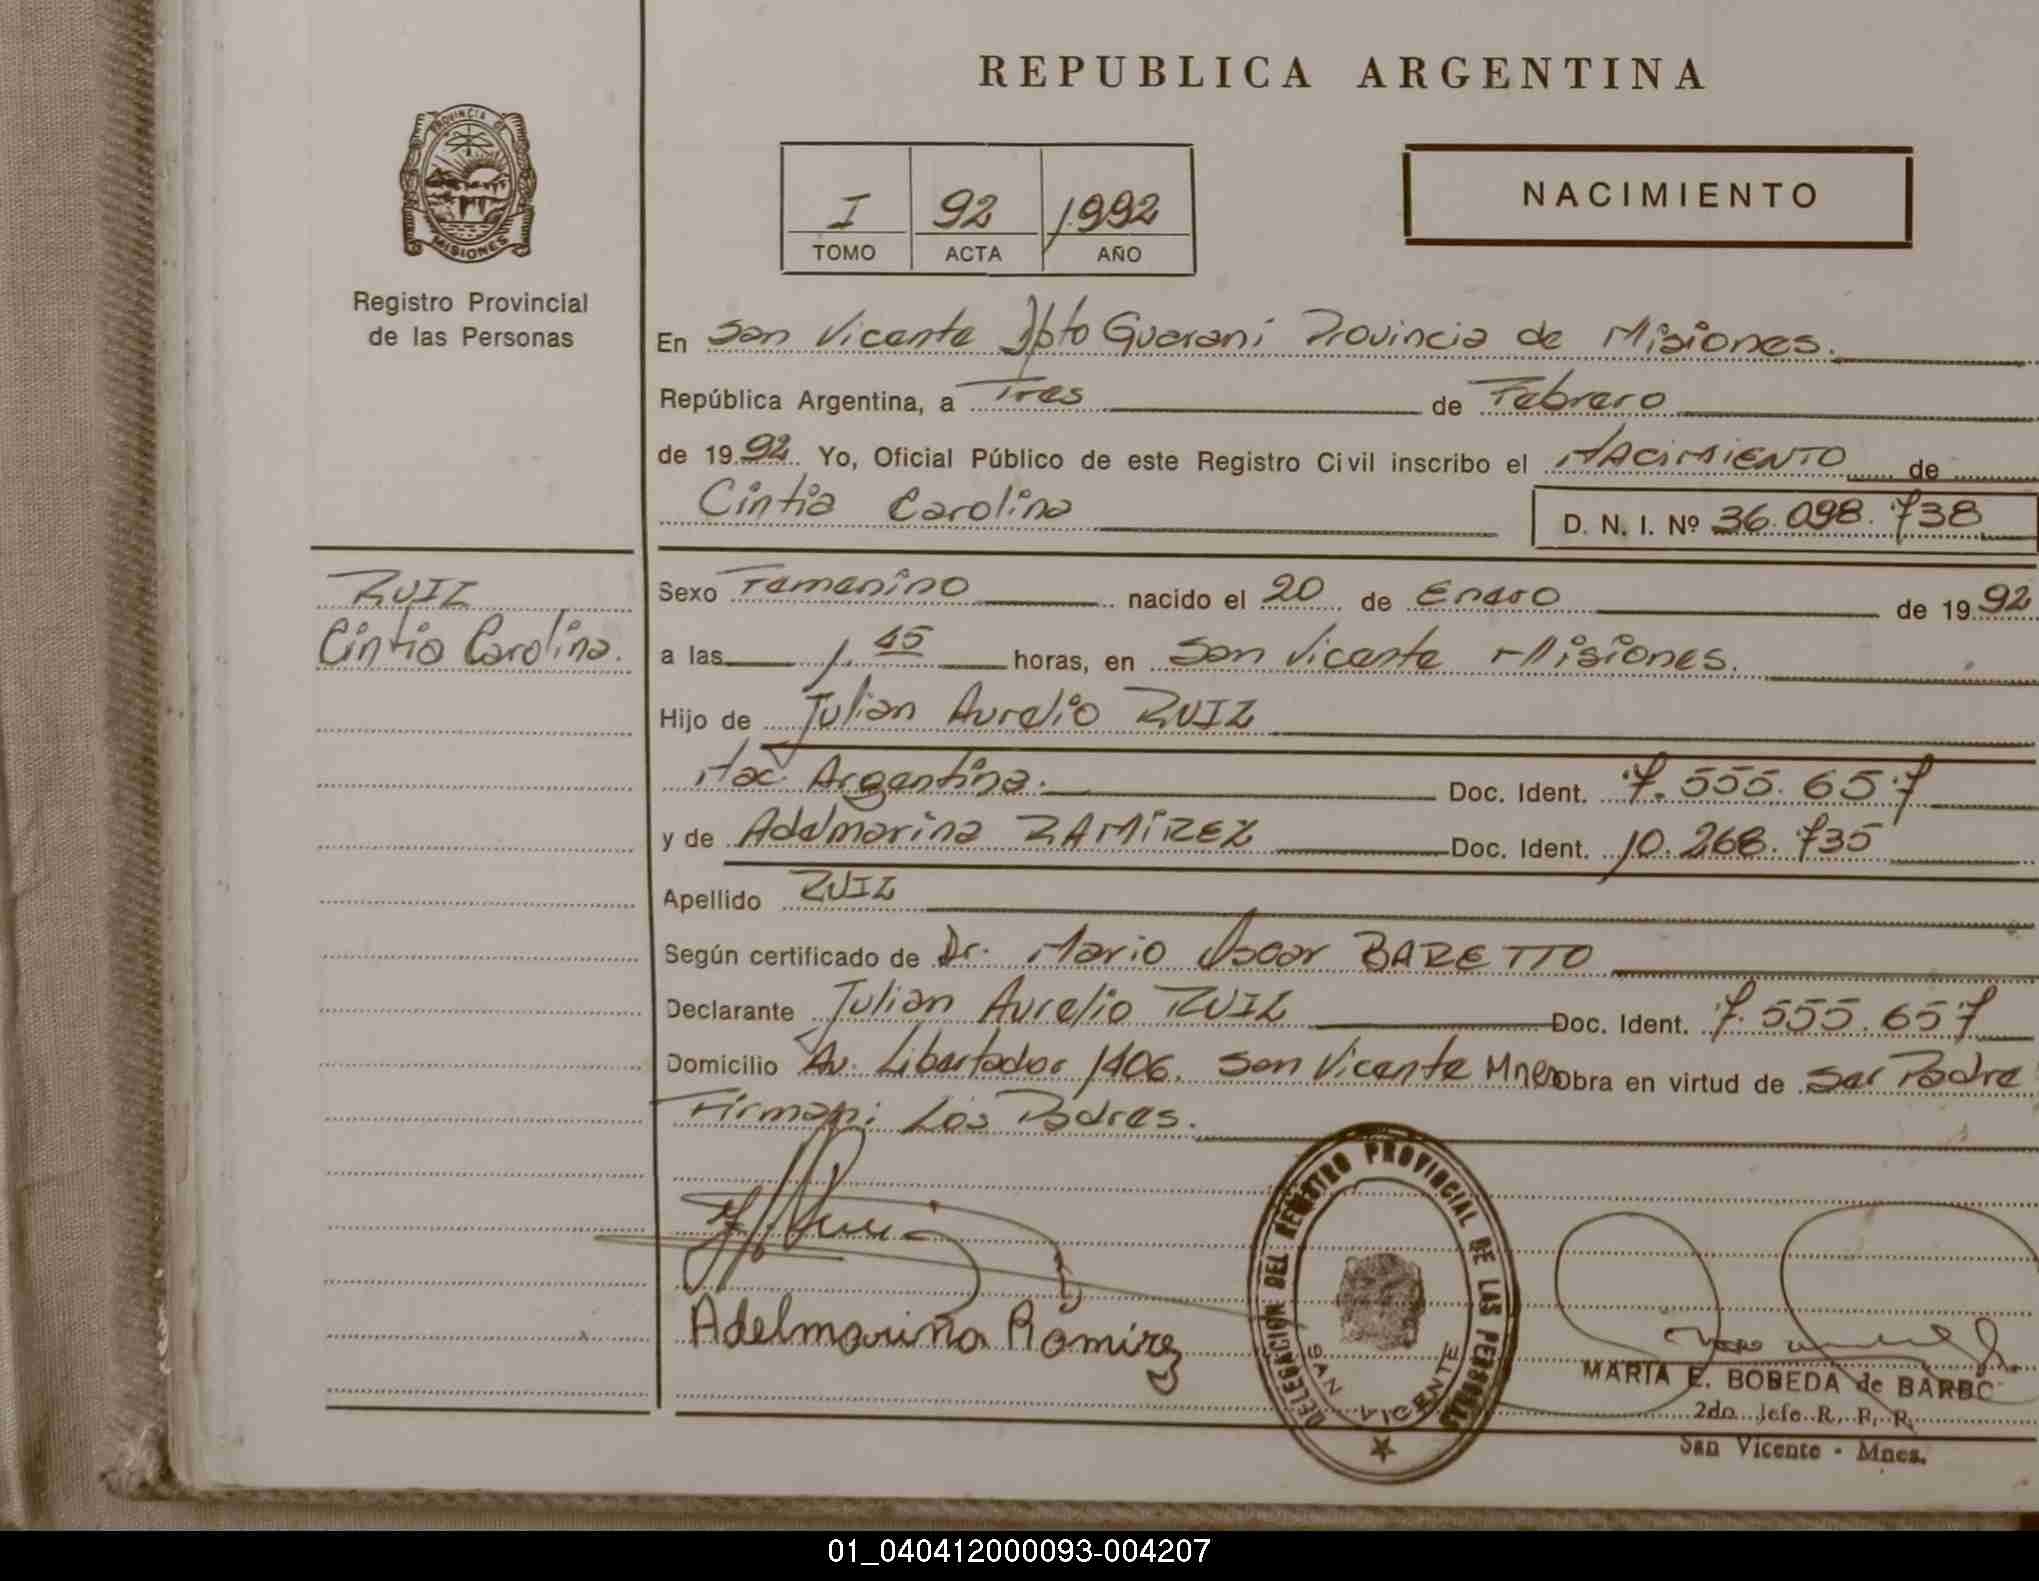 REPUBLICA ARGENTINA
PROVINCIA DE
MISIONES
Registro Provincial
de las Personas
I 92 1992
TOMO ACTA AÑO
NACIMIENTO
En San Vicente Dpto Guaraní Provincia de Misiones.
República Argentina, a Tres de Febrero
de 1992 Yo, Oficial Público de este Registro Civil inscribo el NACIMIENTO de
Cintia Carolina D. N. I. Nº 36.098.738
RUIZ
Cintia Carolina.
Sexo Femenino nacido el 20 de Enero de 1992
a las 1,45 horas, en San Vicente Misiones.
Hijo de Julian Aurelio RUIZ
Nac. Argentina. Doc. Ident. 7.555.657
y de Adelmarina RAMIREZ Doc. Ident. 10.268.735
Apellido RUIZ
Según certificado de Dr. Mario Oscar BARETTO
Declarante Julian Aurelio RUIZ Doc. Ident. 7.555.657
Domicilio Av. Libertador 1406. San Vicente Mnes Obra en virtud de Ser Padre
Firman: Los Padres.
Adelmarina Ramirez
DELEGACION DEL REGISTRO PROVINCIAL DE LAS PERSONAS
SAN VICENTE
MARIA E. BOBEDA de BARBO
2do. Jefe R. P. P.
San Vicente - Mnes.
01_040412000093-004207